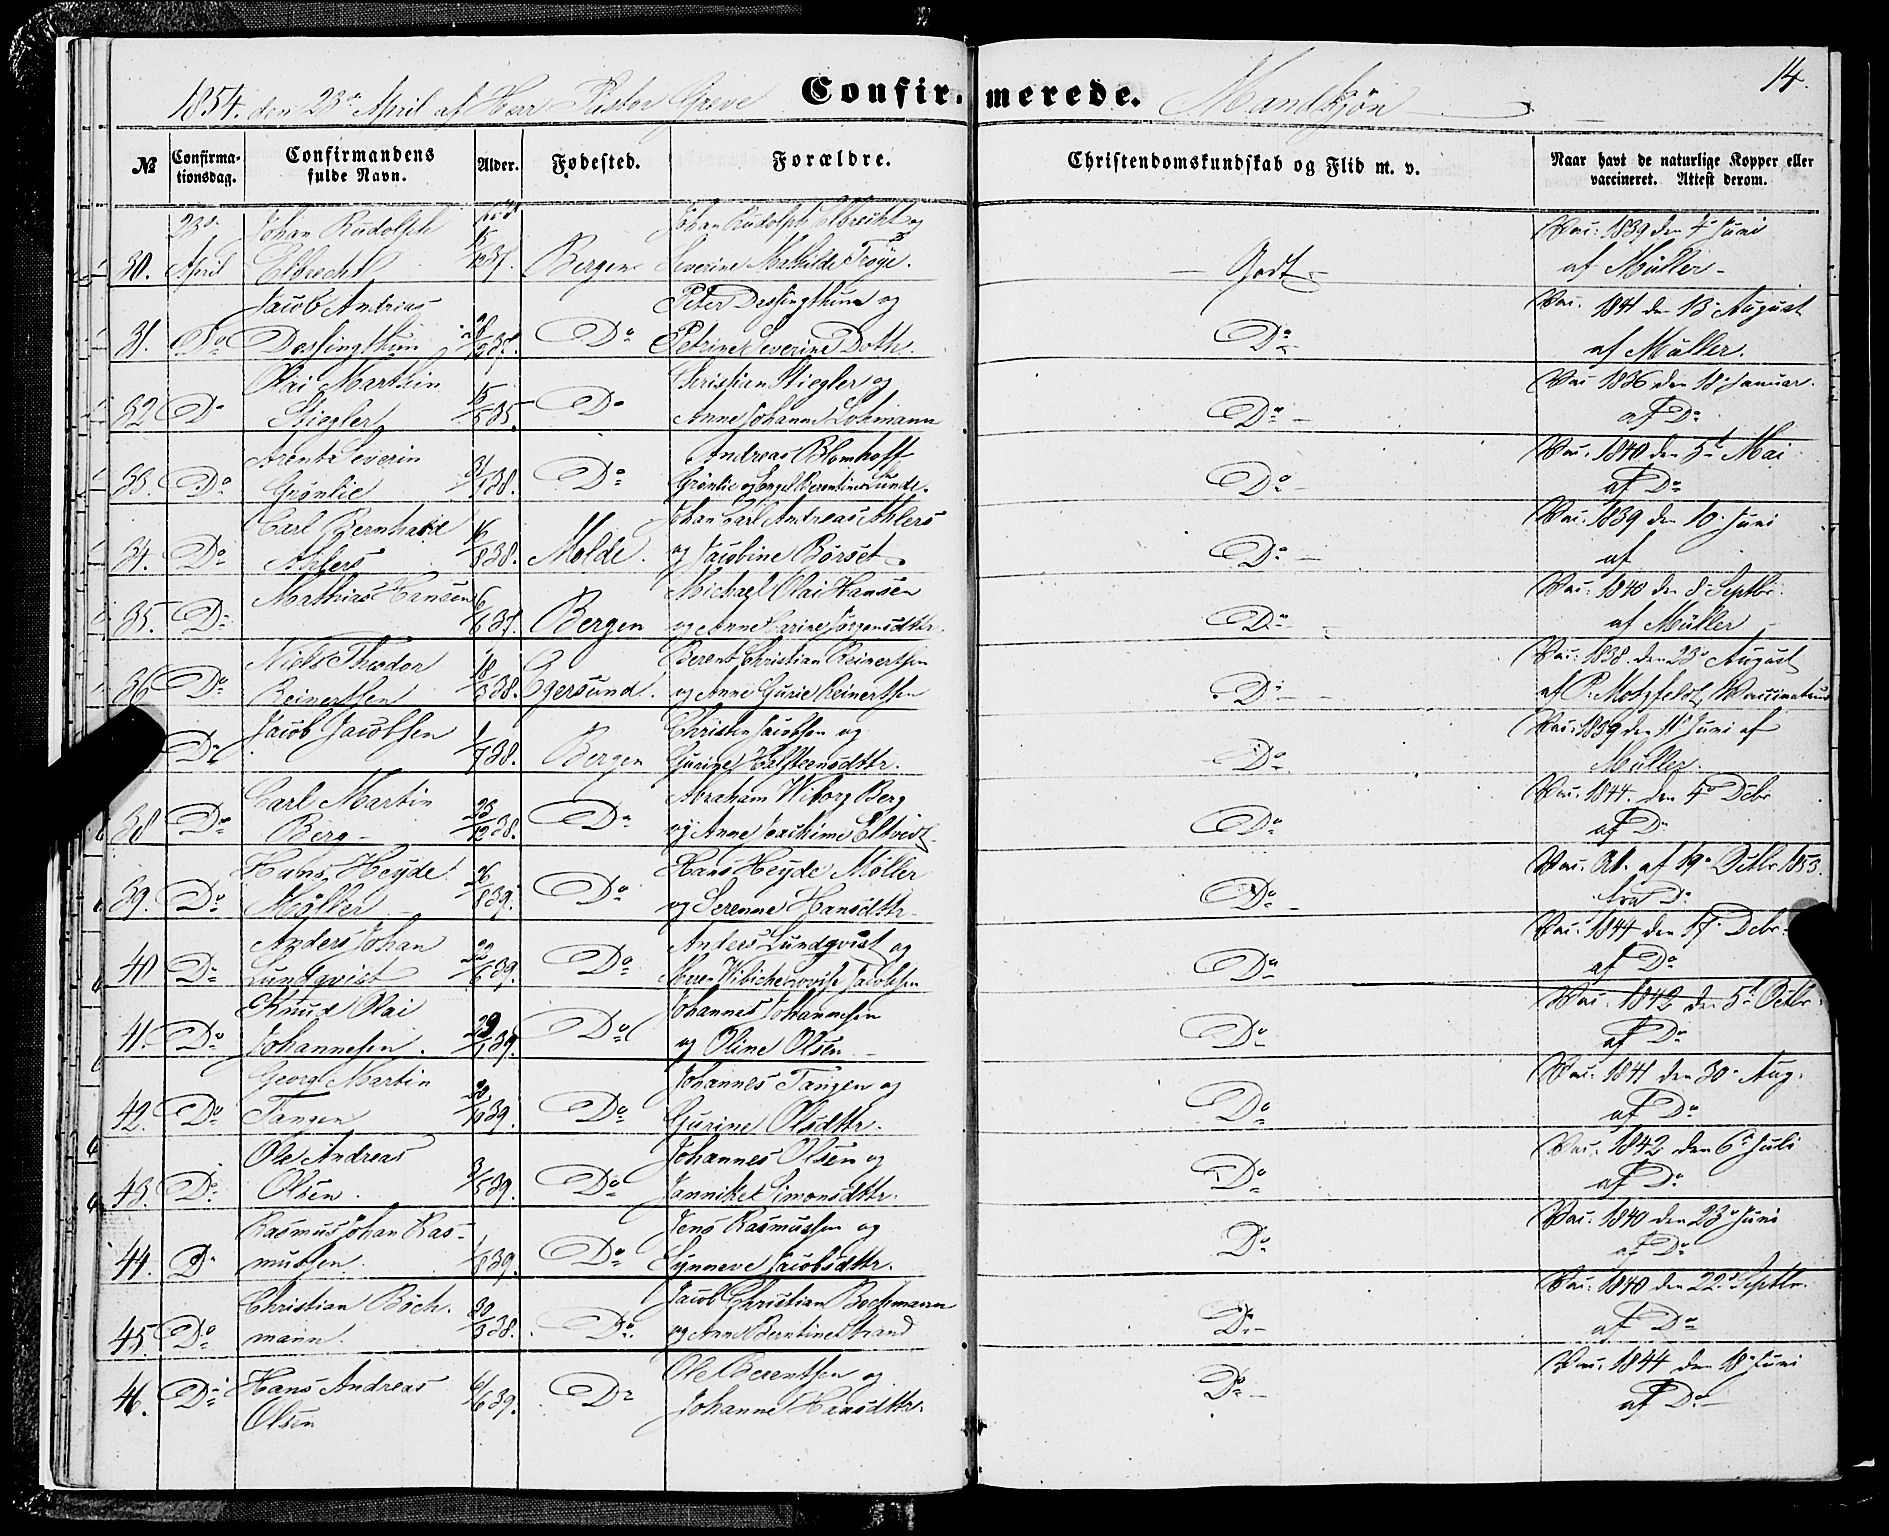 1854. den 23de April af Herr Pastor Greve
Confirmerede.
Mandkjøn
14.
№
Confirmationsdag.
Confirmandens fulde Navn.
Alder.
Fødested.
Forældre.
Christendomskundskab og Flid m. v.
Naar havt de naturlige Kopper eller vaccineret. Attest derom.
30. 23de April Johan Rudolph Elbrecht 37. Bergen Johan Rudolph Elbrecht og Severine Mathilde Trøye. Godt Vac. 1839 den 7 Juni af Müller
31. Do Jacob Andreas Dessingthun Do Peter Dessingthun og Petrine Severine Dothr. Do Vac. 1841 den 13 August af Müller.
32 Do Olai Marthin Stiegler 15/5 35. Do Christian Stiegler og Anne Johanne Lohmann Do Vac 1836 den 18 Januar. af Do
33. Do Arent Severin Grønlie 31/1 38. Do Andreas Blomhoff Grønlie og Engel Berentine Lunde. Do Vac. 1840 den 5t Mai af Do
34. Do Carl Bernhard Ahlers 16/8 38. Molde. Johan Carl Andreas Ahlers og Jacobine Børset Do Vac. 1839 den 10 Juni af
35. Do Mathias Hansen 6/6 37. Bergen Michael Olai Hansen og Anne Carine Jørgensdttr. Do Vac. 1840 den 8 Septbr. af Müller
36 Do Niels Theodor Reinertsen 18/3 38. Egersund. Berent Christian Reinertsen og Anne Gurie Reinertsen Do Vac. 1838. den 23de August af P. Motzfeldt, Vaccinateur
Do Jacob Jacobsen 1/7 38. Bergen Christen Jacobsen og Gurine Halsteensdttr. Do Vac. 1839 den 11 Juni af Müller.
38 Do Carl Martin Berg 23/12 38. Do Abraham Wiborg Berg og Anne Joachime Eltvedt Do Vac. 1844. den 4de Debr af Do
39. Do Hans Heyde Møller 26/8 39. Do Hans Heyde Møller og Serenne Hansdttr Do Vac. At. af 19 Octbr. 1853. fra Do
40 Do Anders Johan Lundqvist 22/6 39. Do Anders Lundqvist og Maren Wibiche Lovise Jacobsen Do Vac. 1844 den 17 Debr. af Do
41. Do Knud Olai Johannesen. 29/1 39. Do Johannes Johannesen og Oline Olsen Do Vac. 1842 den 5t Octbr. af Do
42. Do Georg Martin Tangen 20/10 39. Do Johannes Tangen og Gurine Olsdttr. Do Vac. 1841 den 30 Aug. af Do
43. Do Ole Andreas Olsen. 3/5 39. Do Johannes Olsen og Janniket Simonsdttr. Do Vac. 1842 den 6 Juli af Do
44. Do Rasmus Johan Rasmussen. 1/8 39. Do Jens Rasmussen og Synneve Jacobsdttr. Do Vac. 1840 den 23 Juni af Do
45. Do Christian Böchmann. 30/3 38. Do Jacob Christian Bochmann og Ane Berntine Strand Do Vac. 1840 den 22 Septbr. af Do
46. Do Hans Andreas Olsen 6/6 39. Do Ole Berentsen og Johanne Hansdttr. Do Vac. 1844 den 18 Juni af Do